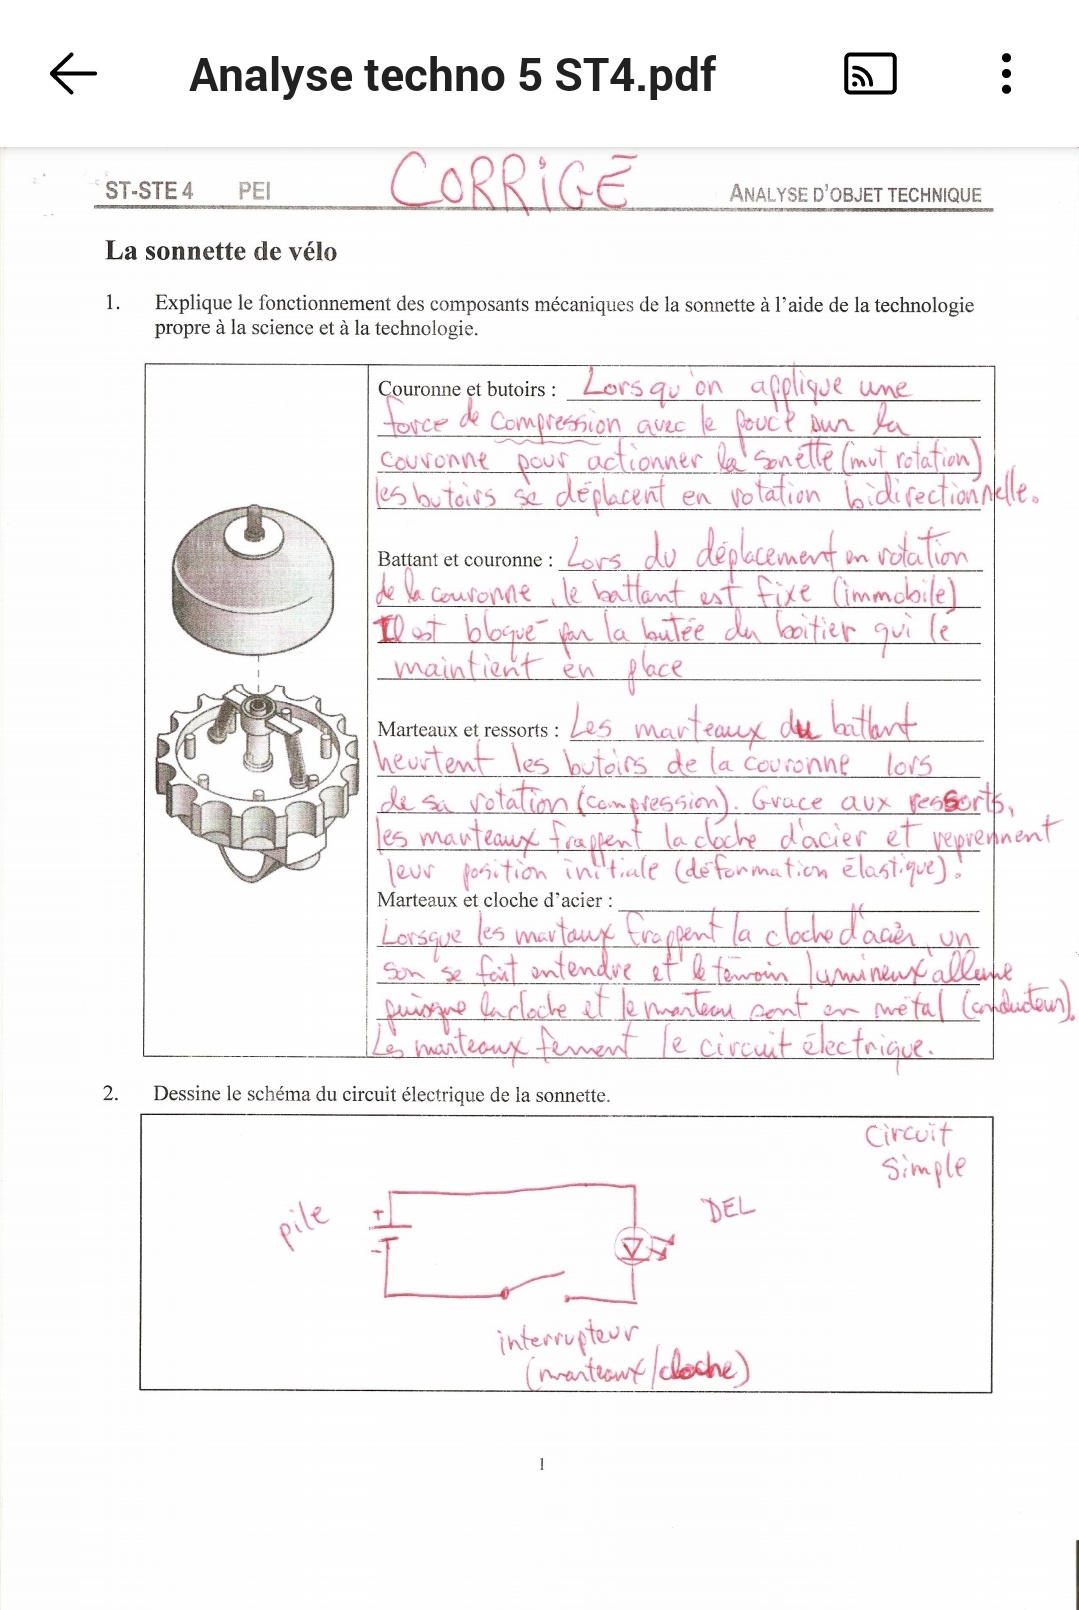 Analyse techno 5 ST4.pdf
CORRIGÉ
ST-STE 4 PEI ANALYSE D'OBJET TECHNIQUE
La sonnette de vélo
1. Explique le fonctionnement des composants mécaniques de la sonnette à l'aide de la technologie
propre à la science et à la technologie.
Couronne et butoirs : Lorsqu'on applique une
force de compression avec le pouce sur la
couronne pour actionner la sonette (mvt rotation)
les butoirs se déplacent en rotation bidirectionnelle.
Battant et couronne : Lors du déplacement en rotation
de la couronne, le battant est fixe (immobile)
Il est bloqué par la butée du boitier qui le
maintient en place
Marteaux et ressorts : Les marteaux du battant
heurtent les butoirs de la couronne lors
de sa rotation (compression). Grace aux ressorts,
les marteaux frappent la cloche d'acier et reprennent
leur position initiale (déformation élastique).
Marteaux et cloche d'acier :
Lorsque les martaux frappent la cloche d'acier, un
son se fait entendre et le témoin lumineux allume
puisque la cloche et le marteau sont en métal (conducteur).
Les marteaux ferment le circuit électrique.
2. Dessine le schéma du circuit électrique de la sonnette.
Circuit
Simple
pile
+
-
DEL
interrupteur
(marteaux/cloche)
1